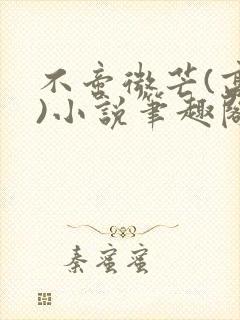 不啻微芒(高
)小說筆趣閣
秦蜜蜜